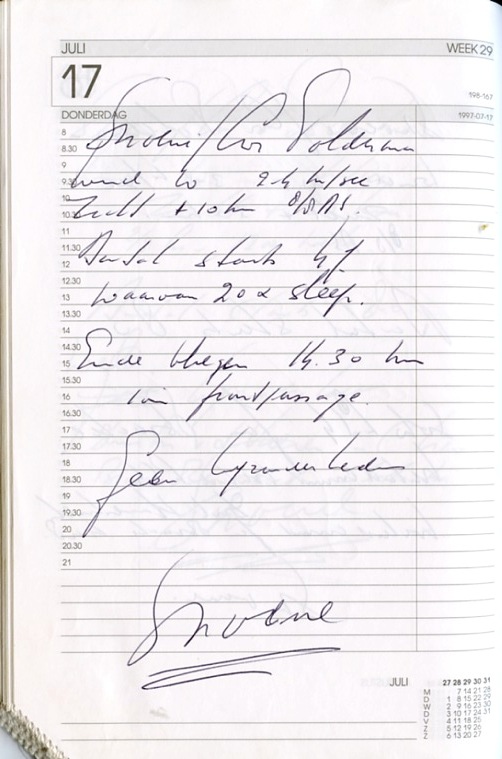 JULI WEEK 29
17
198-167
DONDERDAG 1997-07-17
8
8.30 / Cor Polderman
9
9.30 wind W 24 km/
10
10.30 Zicht + 10 km 8/8
11
11.30 Aantal starts 47
12
12.30 waarvan 20 x sleep.
13
13.30
14
14.30 Einde vliegen 14.30 uur
15
15.30 frontpassage.
16
16.30
17
17.30
18 Geen bijzonderheden
18.30
19
19.30
20
20.30
21
JULI 27 28 29 30 31
M 7 14 21 28
D 1 8 15 22 29
W 2 9 16 23 30
D 3 10 17 24 31
V 4 11 18 25
Z 5 12 19 26
Z 6 13 20 27